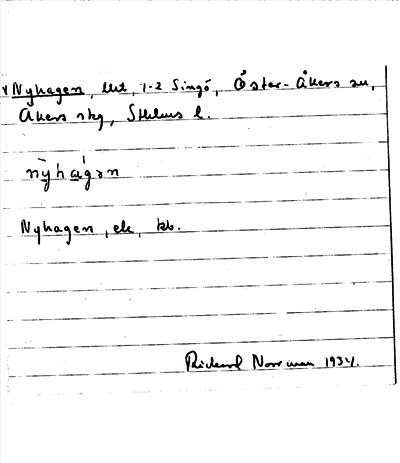 Nyhagen, lht, 1-2 Singö, Öster-Åkers sn,
Åkers skg, Sthlms l.
nỳhaɡ́ən
Nyhagen, ek, kb.
Rickard Norrman 1934.